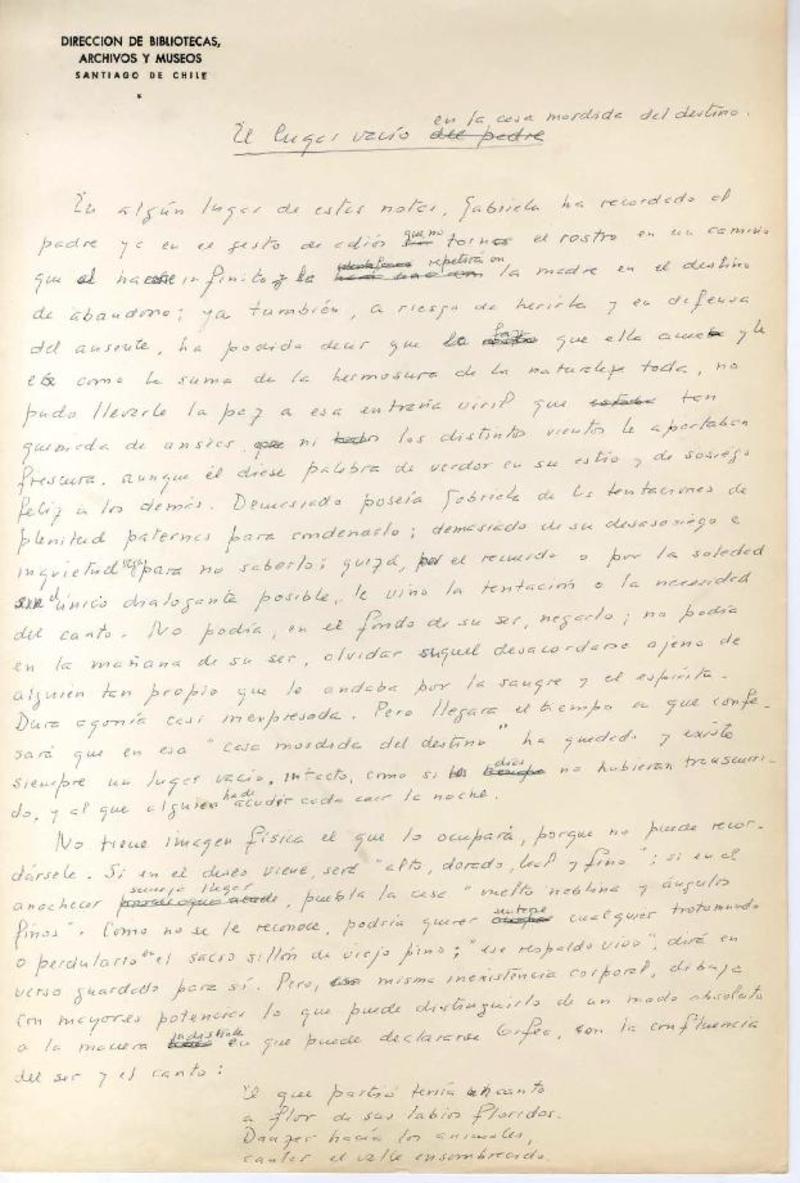 DIRECCION DE BIBLIOTECAS,
ARCHIVOS Y MUSEOS
SANTIAGO DE CHILE
en la casa mordida del destino.
El lugar vacío del padre
En algún lugar de estas notas, Gabriela ha recordado al
padre ya en el gesto de adiós que no torna el rostro en un camino
que se hace infinito y la repetirá en la madre en el destino
de abandono; ya también, a riesgo de herirla y en defensa
del ausente, ha podido decir que la que ella ama y le
es como la suma de la hermosura de la naturaleza toda, no
pudo llevarle la paz a esa entraña viril que tan
quemada de ansias, ni los distintos vientos le aportaban
frescura, aunque él diese palabra de verdor en su estío y de sosiego
feliz a los demás. Demasiado poseía Gabriela de las tentaciones de
plenitud paternas para condenarlo; demasiado de su desasosiego e
inquietud para no saberlo; quizá, por el recuerdo o por la soledad
el único dialogante posible, le vino la tentación o la necesidad
del canto. No podía, en el fondo de su ser, negarlo; no podía
en la mañana de su ser, olvidar aquel desacordarse ajeno de
alguien tan propio que le andaba por la sangre y el espíritu.
Dura agonía casi inexpresada. Pero llegará el tiempo en que confe-
sará que en esa "casa mordida del destino" ha quedado y existe
siempre un lugar vacío, intacto, como si los días no hubieran transcurri-
do, y al que alguien ha de acudir cada caer la noche.
No tiene imagen física el que lo ocupará, porque no puede recor-
dársele. Si en el deseo viene, será "alto, dorado, leal y fino"; si en el
anochecer llegar, puebla la casa "vuelto neblina y ángulos
finos". Como no se le reconoce, podría querer cualquier trotamundo
o perdulario en el sacro sillón de viejo pino; "ese respaldo vivo", dirá en
verso guardado para sí. Pero, misma inexistencia corporal, dibuja
con mayores potencias lo que puede distinguirlo de un modo absoluto
a la manera indudable en que puede declararse Orfeo, con la confluencia
del ser y el canto:
El que partió tenía un canto
a flor de sus labios floridos.
Danzar hacía los animales,
cantar el valle ensombrecido.